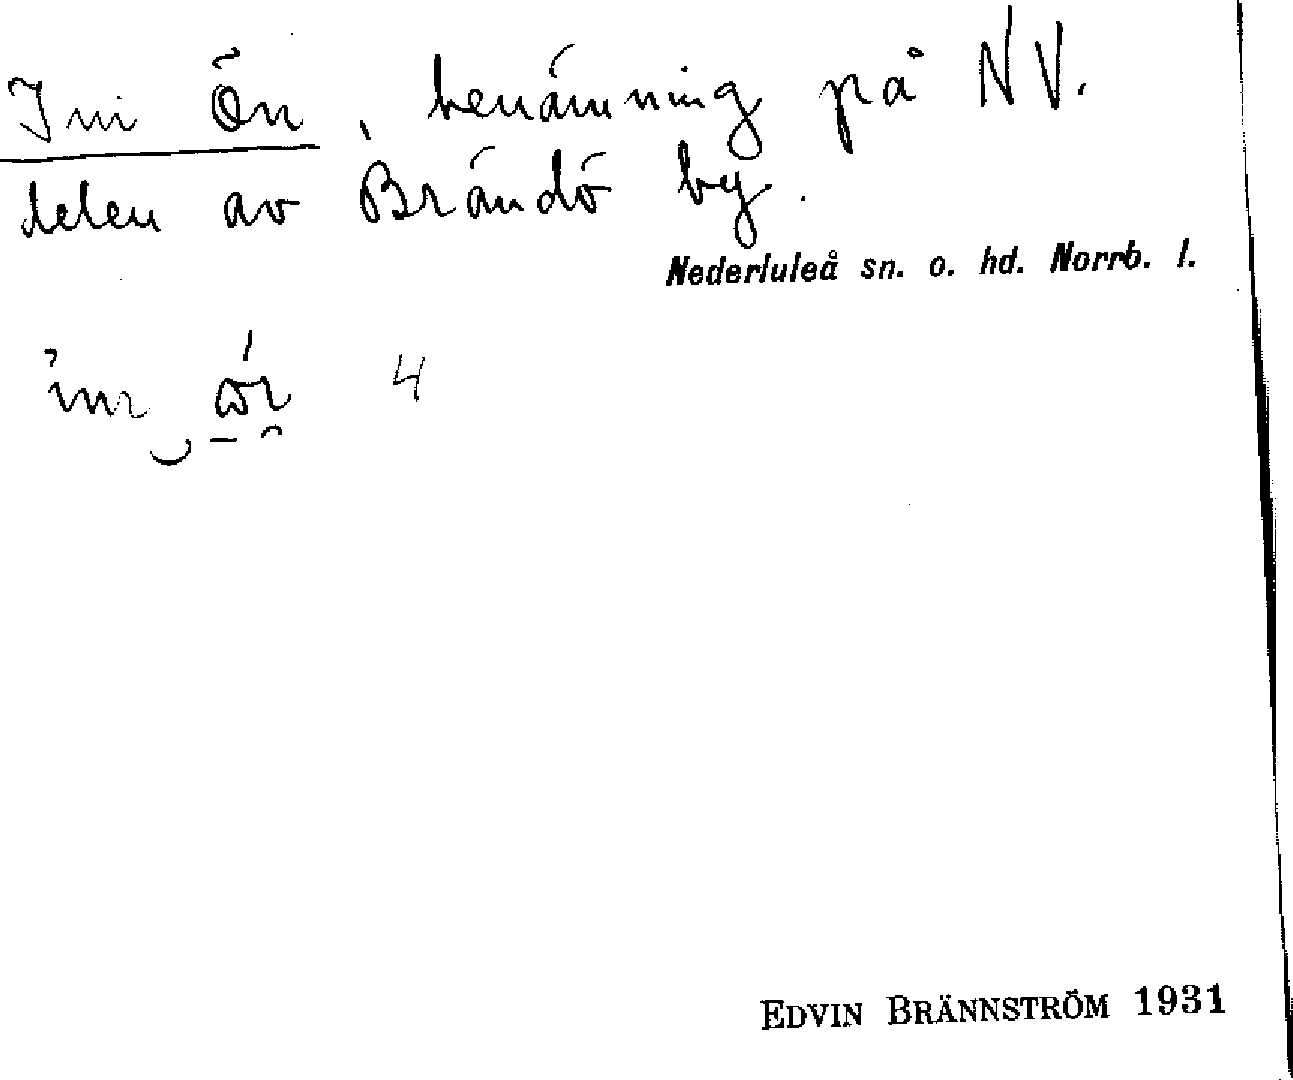 Ini Ön, benämning på NV.
delen av Brändö by.
Nederluleå sn. o. hd. Norrb. l.
4
EDVIN BRÄNNSTRÖM 1931